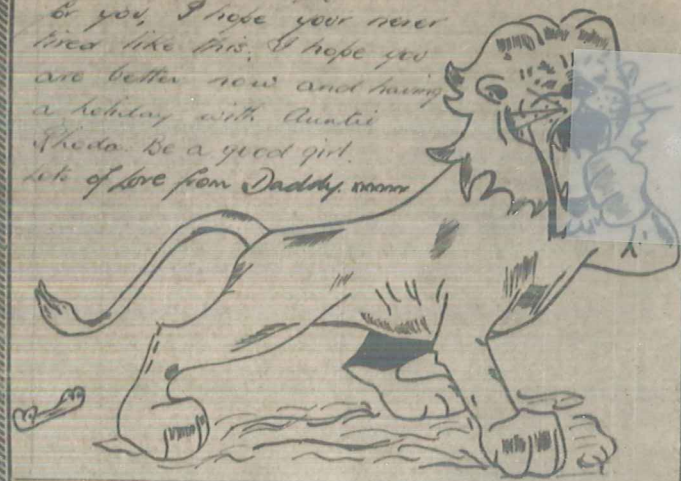 for you, I hope your never
tired like this. I hope you
are better now and having
a holiday with Auntie
Rhoda. Be a good girl.
Lots of love from Daddy.